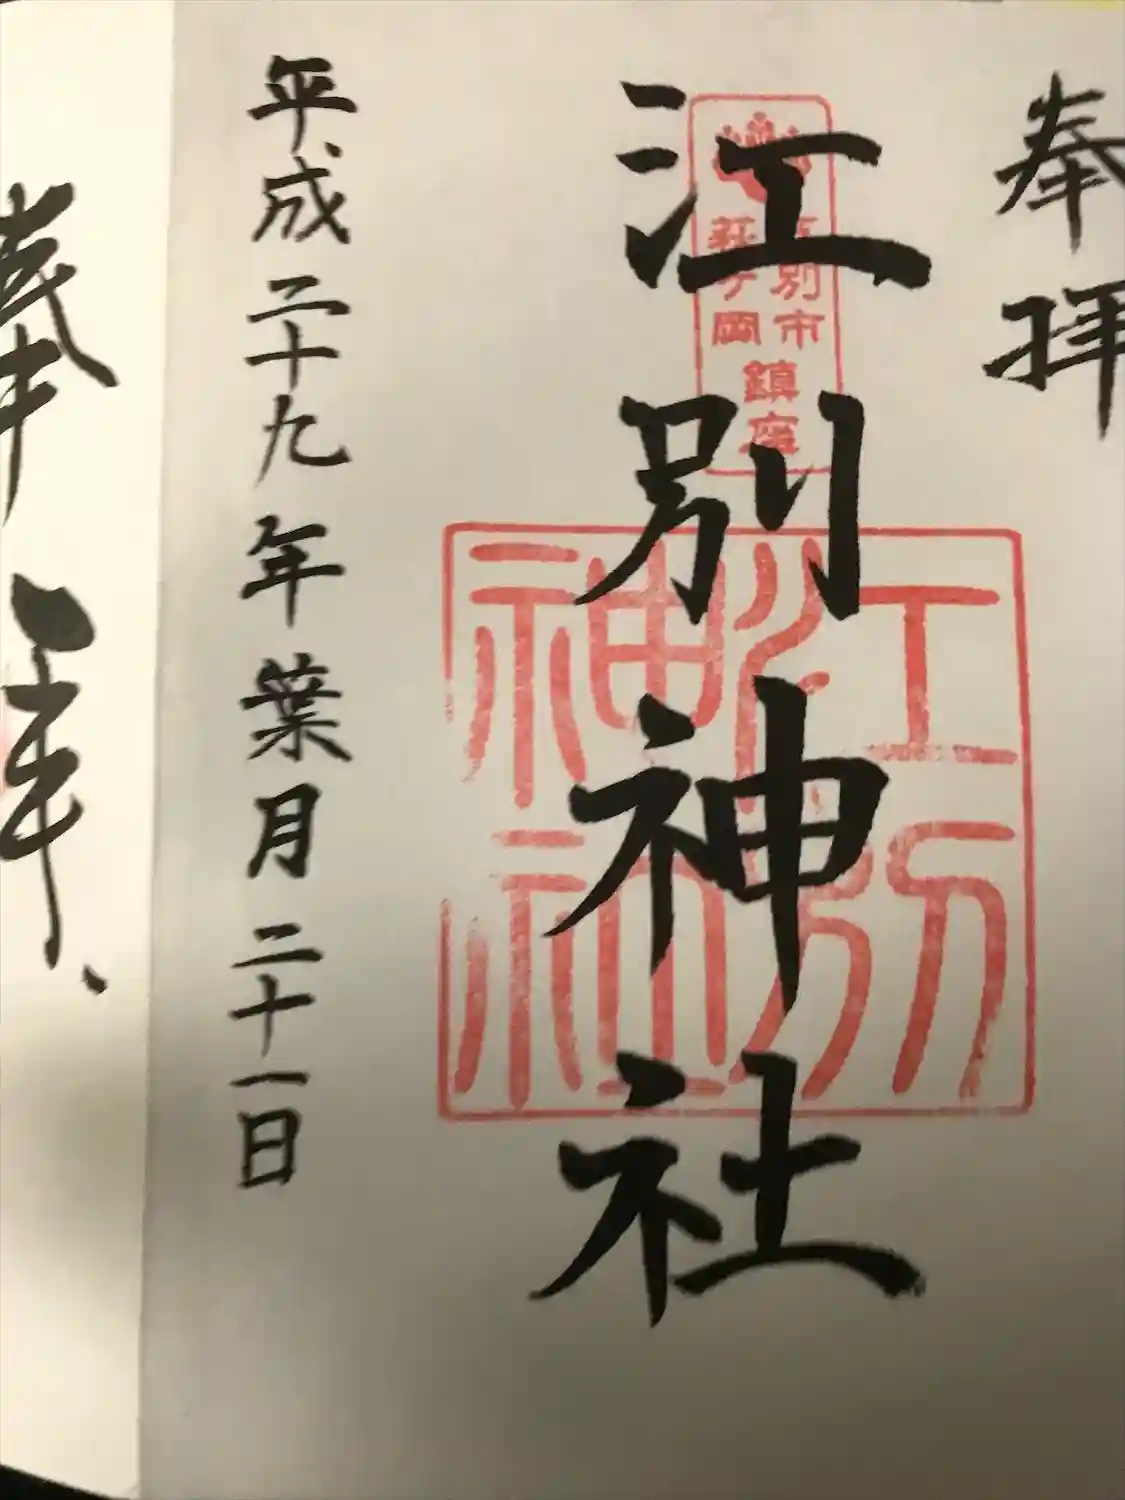 奉拝
江別神社
江別市
萩ヶ岡
鎮座
江別
神社
平成二十九年葉月二十一日